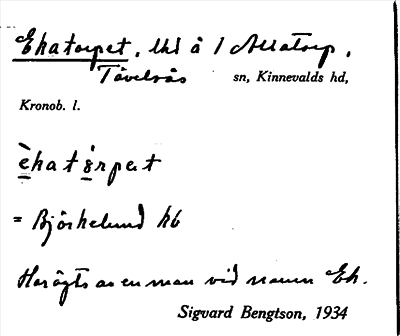 Ekatorpet, lht å 1 Allatorp,
Tävelsås sn, Kinnevalds hd,
Kronob. l.
èkatórpət
= Björkelund kb
Har ägts av en man vid namn Ek.
Sigvard Bengtson, 1934